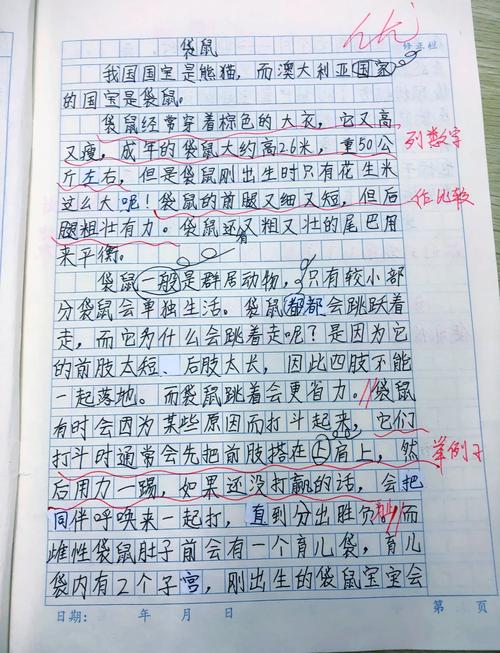 袋鼠
修正栏
我国国宝是熊猫,而澳大利亚国家
的国宝是袋鼠。
袋鼠经常穿着棕色的大衣,它又高
又瘦,成年的袋鼠大约高2.6米,重50公
列数字
斤左右,但是袋鼠刚出生时只有花生米
这么大呢!袋鼠的前腿又细又短,但后
作比较
腿粗壮有力。袋鼠还有又粗又壮的尾巴用
来平衡。
袋鼠一般是群居动物,只有较小部
分袋鼠会单独生活。袋鼠都都会跳跃着
走,而它为什么会跳着走呢?是因为它
的前肢太短、后肢太长,因此四肢不能
一起落地。而袋鼠跳着会更省力。袋鼠
有时会因为某些原因而打斗起来,它们
打斗时通常会先把前肢搭在上肩上,然
举例子
后用力一踢,如果还没打赢的话,会把
同伴呼唤来一起打,直到分出胜负。而
雌性袋鼠肚子前会有一个育儿袋,育儿
袋内有2个子宫,刚出生的袋鼠宝宝会
日期: 年 月 日 第 页